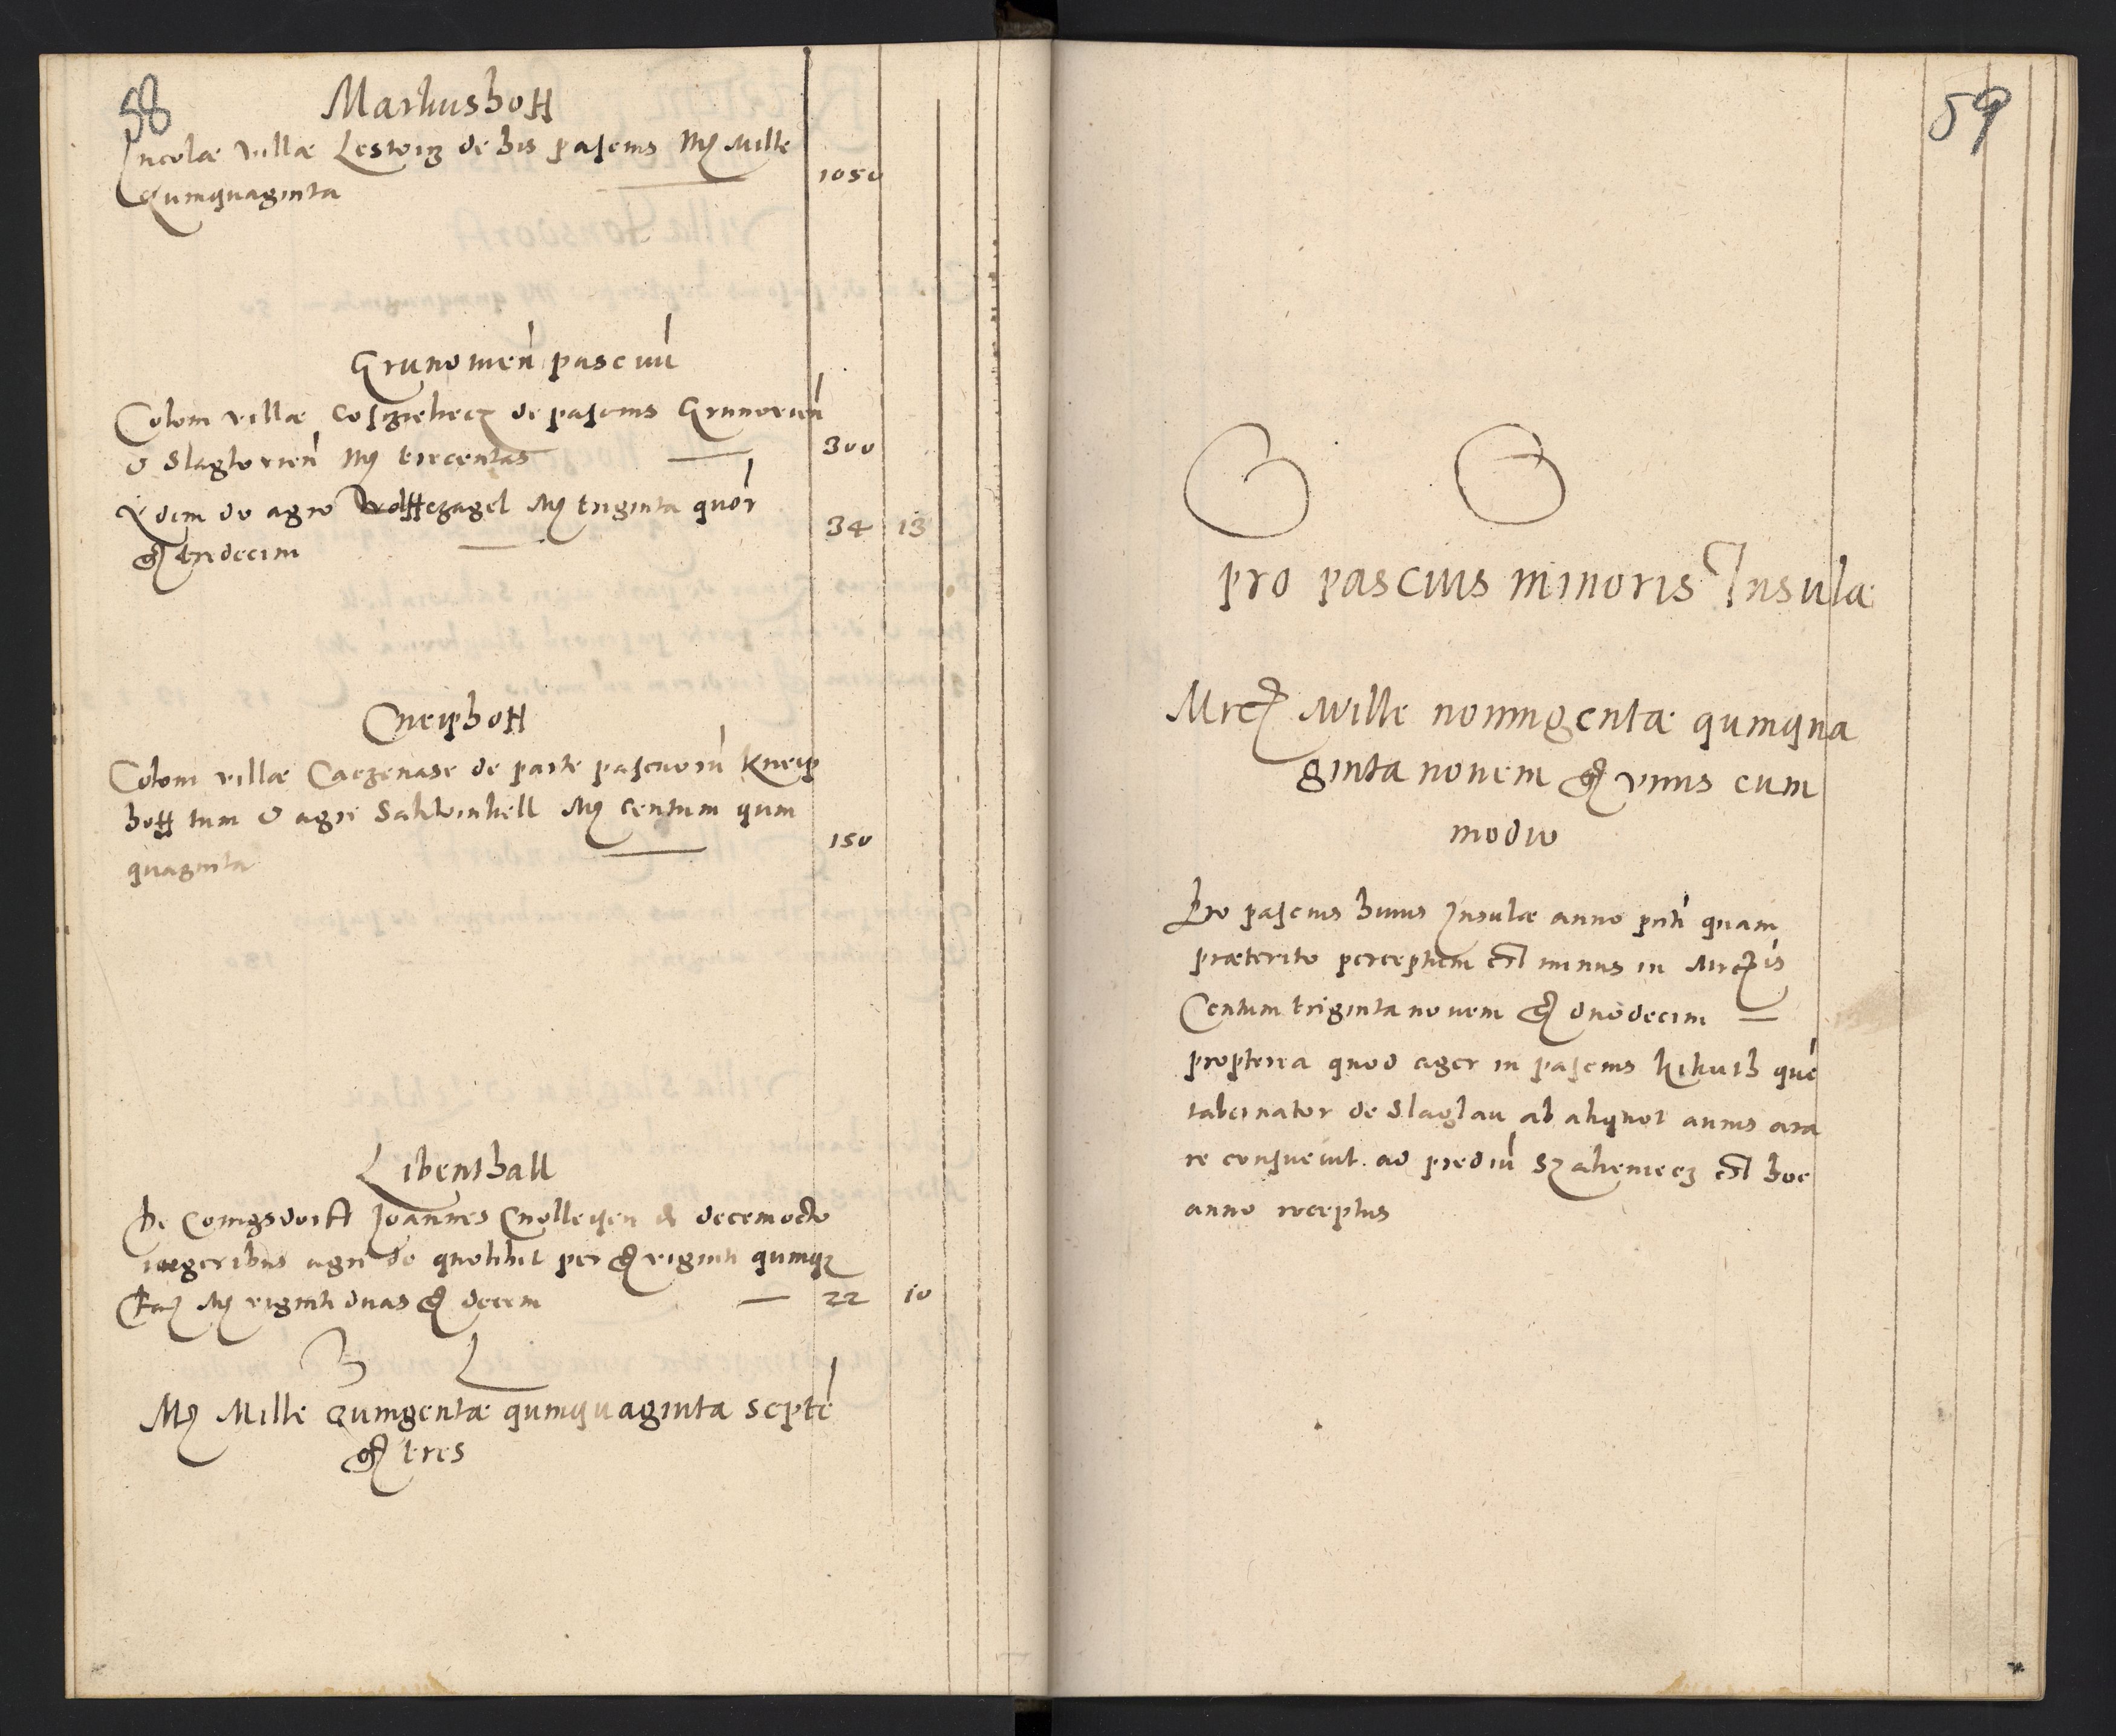 58
Markushoff
Incolæ villæ Leswitz de his pascuis Mrc Mille
Quinquaginta 1050
Grunowien pascuū
Coloni villæ Coszielietz de pascuis Grunowien
& Slaglowien Mrc trecentas 300
Idem de agro Wolffczagel Mrc triginta quor
gr tredecim 34 13
Cneiphoff
Coloni villæ Caczenase de parte pascuorū Kneip
hoff tum & agri Sakwinkell Mrc centum quin
quaginta 150
Libenthall
De Conigsdorff Joannes Cnolleysen de decemocto
iugeribus agri de quolibet per gr viginti quinq
facit Mrc viginti duas gr decem 22 10
B L
Mrc Mille Quingentæ quinquaginta septē
gr tres
59
pro pascuis minoris Insulæ
Mrc Mille noningentæ quinqua
ginta novem gr unus cum
medio
Pro pascuis huius Insulæ anno pnti quam
præterito perceptum est minus in Mrcis
Centum triginta novem gr duodecim
propterea quod ager in pascuis kikuth quē
tabernator de Slaglau ab aliquot annis ara
re consuevit ad prediū Szaleniecz est hoc
anno receptus